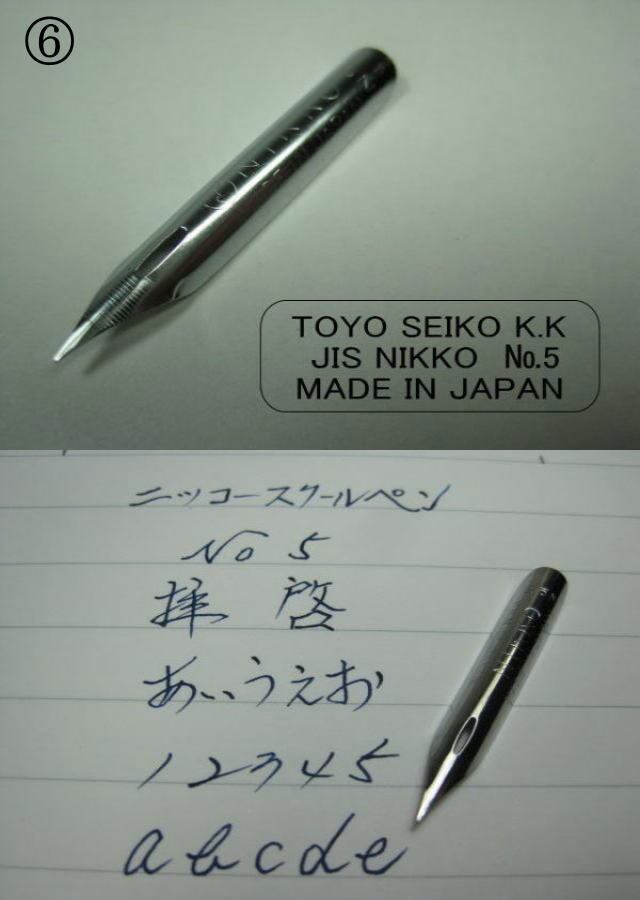 ⑥
TOYO SEIKO K.K
JIS NIKKO No.5
MADE IN JAPAN
ニッコースクールペン
No 5
拝 啓
あいうえお
12345
abcde